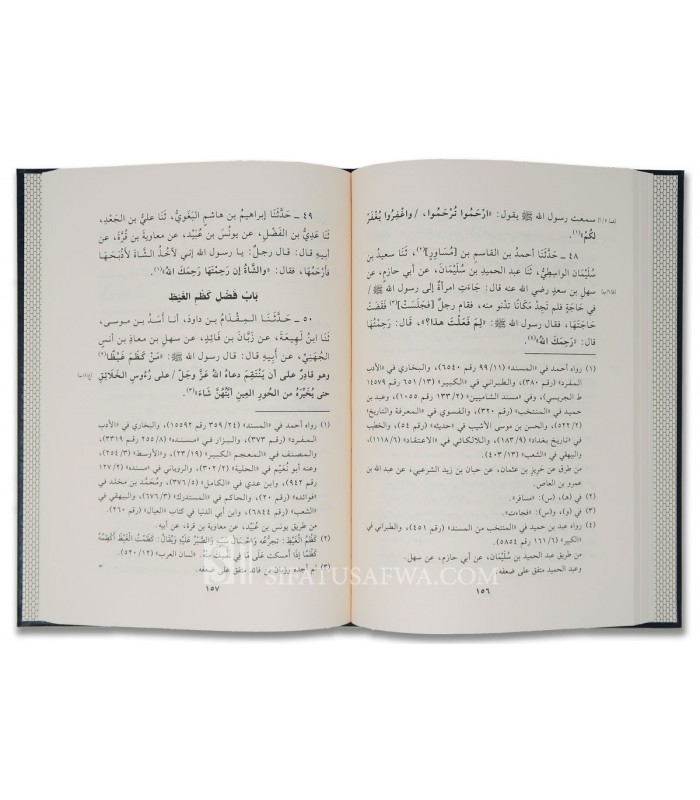 سمعت رسول الله ﷺ يقول: «ارْحَمُوا تُرْحَمُوا، / واغْفِرُوا يُغْفَرْ
لكُمْ»(١).
٤٨ ـ حَدَّثَنَا أحمدُ بن القاسِمِ بن [مُسَاوِرٍ](٢)، ثَنَا سعيدُ بن
سُلَيْمَان الواسِطِيُّ، ثَنَا عبد الحميدِ بن سُلَيْمَان، عن أبي حازِمٍ، عن
سهلِ بن سعدٍ رضي الله عنه قال: جَاءَتِ امرأةٌ إلى رسولِ الله ﷺ
في حاجَةٍ فلم تَجِدْ مَكَانًا تدْنُو منه، فقام رجلٌ [فجَلَسَتْ](٣) فقَضَتْ
حاجَتَهَا، فقال رسول الله ﷺ: «لِمَ فَعَلْتَ هذا؟»، قال: رَحِمْتُهَا
قال: «رَحِمَكَ اللهُ»(٤).
(١) رواه أحمد في «المسند» (١١/ ٩٩ رقم ٦٥٤٠)، والبخاري في «الأدب
المفرد» (رقم ٣٨٠)، والطبراني في «الكبير» (١٣/ ٦٥١ رقم ١٤٥٧٩
ط الجريسي)، وفي «مسند الشاميين» (٢/ ١٣٣ رقم ١٠٥٥)، وعبد بن
حميد في «المنتخب» (رقم ٣٢٠)، والفسوي في «المعرفة والتاريخ»
(٢/ ٥٢٢)، والحسن بن موسى الأشيب في «حديثه»، والخطيب
في «تاريخ بغداد» (٩/ ١٨٣)، واللالكائي في «الاعتقاد» (٦/ ١١١٨)
والبيهقي في «الشعب» (١٣/ ٤٠٣)
من طرق عن حَرِيز بن عثمان، عن حبان بن زيد الشرعبي، عن عبد الله بن
عمرو بن العاص.
(٢) في (هـ)، (س): «مسافر».
(٣) في (و)، و(س): «فجاءت».
(٤) رواه عبد بن حميد في «المنتخب من المسند» (رقم ٤٥١)، والطبراني في
«الكبير» (٦/ ١٦١ رقم ٥٨٥٤)
من طريق عبد الحميد بن سُلَيْمَان، عن أبي حازم، عن سهل.
وعبد الحميد متفق على ضعفه.
١٥٦
٤٩ ـ حَدَّثَنَا إبراهيمُ بن هاشمٍ البَغَوِيُّ، ثَنَا عليُّ بن الجَعْدِ،
ثَنَا عَدِيُّ بن الفَضْلِ، عن يونُسَ بن عُبَيْد، عن معاوية بن قُرَّة، عن
أبيهِ قال: قال رجلٌ: يا رسول الله إني لآخُذُ الشَّاةَ لأَذْبَحَهَا
فأَرْحَمُهَا، فقال: «والشَّاةُ إن رَحِمْتَهَا رَحِمَكَ اللهُ»(١).
بَابُ فَضْلِ كَظْمِ الغَيْظِ
٥٠ ـ حَدَّثَنَا المِقْدَامُ بن داودَ، أنا أَسَدُ بن موسى،
ثَنَا ابنُ لَهِيعَةَ، عن زَبَّانَ بن فَائِدٍ، عن سهلِ بن معاذِ بن أنسٍ
الجُهَنِيِّ، عن أبِيهِ قال: قال رسول الله ﷺ: «مَنْ كَظَمَ غَيْظًا(٢)
وهو قادِرٌ على أن يَنْتَقِمَ دعاهُ اللهُ عَزَّ وجَلَّ / على رُءُوسِ الخَلَائِقِ
حتى يُخَيِّرَهُ من الحُورِ العِينِ أيَّتُهُنَّ شَاءَ»(٣).
(١) رواه أحمد في «المسند» (٢٤/ ٣٥٩ رقم ١٥٥٩٢)، والبخاري في «الأدب
المفرد» (رقم ٣٧٣)، والبزار في «مسنده» (٨/ ٢٥٥ رقم ٣٣١٩)
والمصنف في «المعجم الكبير» (١٩/ ٢٣)، و«الأوسط» (٣/ ٢٥٤)،
وعنه أبو نُعَيْم في «الحلية» (٢/ ٣٠٢)، والروياني في «مسنده» (٢/ ١٢٧
رقم ٩٤٢)، وابن عدي في «الكامل» (٥/ ٣٧٦)، ومُحَمَّد بن مخلد في
«فوائده» (رقم ٢٠)، والحاكم في «المستدرك» (٣/ ٦٧٦)، والبيهقي في
«الشعب» (رقم ٦٨٤٤)، وابن أبي الدنيا في كتاب «العيال» (رقم ٢٦٠).
من طريق يونس بن عُبَيْد، عن معاوية بن قرة، عن أبيه.
(٢) كَظْمُ الْغَيْظِ: تجرُّعه واحتمال سببه والصَّبْرُ عَلَيْهِ وَيُقَالُ: كَظَمْتُ الْغَيْظَ أَكْظِمُهُ
كَظْمًا إِذَا أَمسكت عَلَى مَا فِي نفسك. «لسان العرب» (١٢/ ٥٢٠).
(٣) لم أجده وزبان بن فائد متفق على ضعفه.
١٥٧
SIFATUSAFWA.COM